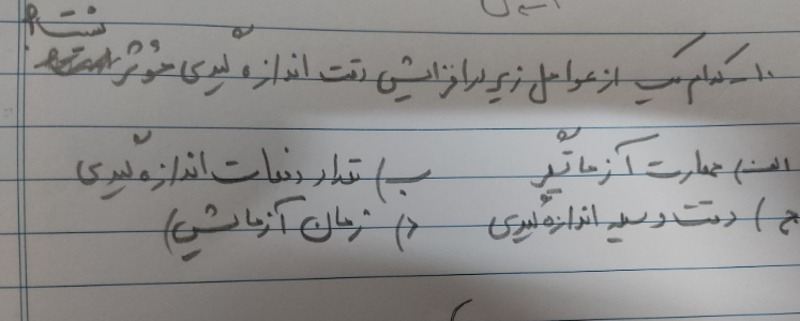 ۱۰- کدام یک از عوامل زیر در افزایش دقت اندازه گیری مؤثر نیست؟
الف) مهارت آزمایشگر ب) تعداد دفعات اندازه گیری
ج) دقت وسیله اندازه گیری د) زمان آزمایش)